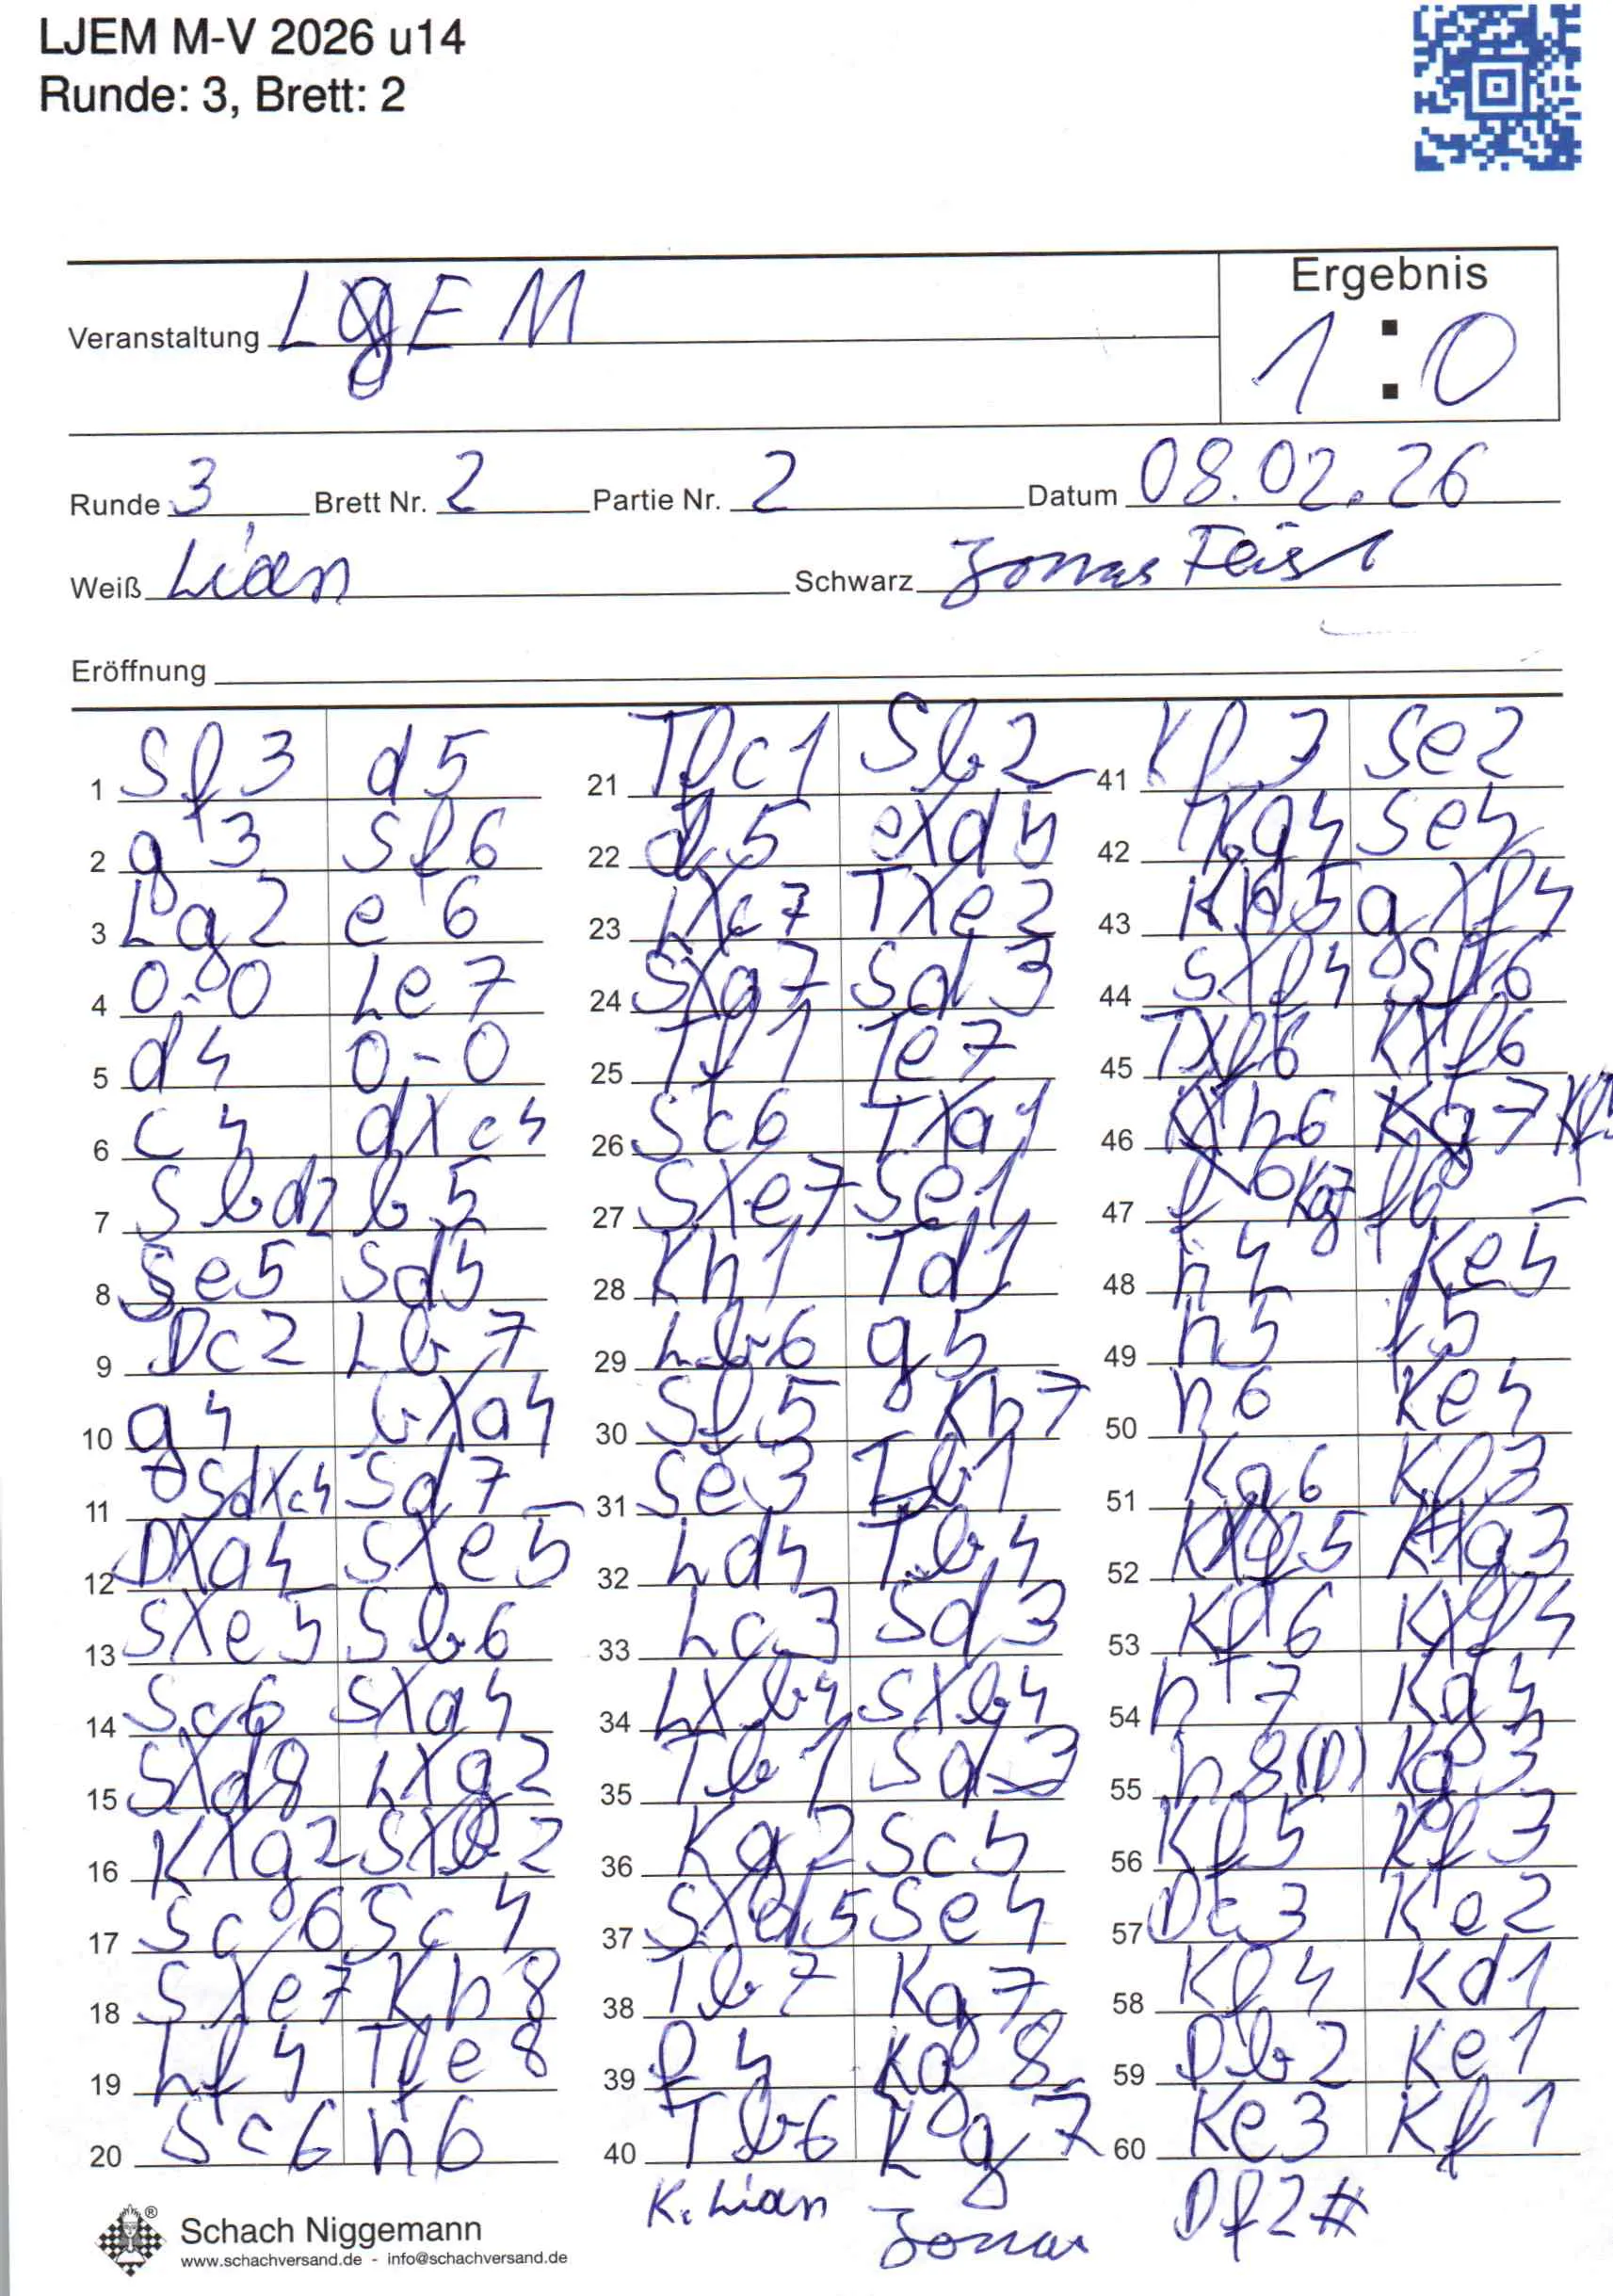 LJEM M-V 2026 u14
Runde: 3, Brett: 2
Veranstaltung LJEM
Ergebnis
1 : 0
Runde 3 Brett Nr. 2 Partie Nr. 2 Datum 08.02.26
Weiß Lian Schwarz Jonas Feist
Eröffnung
1 Sf3 d5
2 g3 Sf6
3 Lg2 e6
4 0-0 Le7
5 d4 0-0
6 c4 dxc4
7 Sbd2 b5
8 Se5 Sd5
9 Dc2 Lb7
10 a4 bxa4
11 Sdxc4 Sd7
12 Dxa4 Sxe5
13 Sxe5 Sb6
14 Sc6 Sxa4
15 Sxd8 Lxg2
16 Kxg2 Sxb2
17 Sc6 Sc4
18 Sxe7 Kh8
19 Lf4 Tfe8
20 Sc6 h6
21 Tfc1 Sb2
22 d5 exd5
23 Lxc7 Txe2
24 Sxa7 Sd3
25 Tf1 Te7
26 Sc6 Txa1
27 Sxe7 Se1
28 Kh1 Td1
29 Lb6 g5
30 Sf5 Kh7
31 Se3 Tb1
32 Ld4 Tb4
33 Lc3 Sd3
34 Lxb4 Sxb4
35 Tb1 Sd3
36 Kg2 Sc5
37 Sxd5 Se4
38 Tb7 Kg7
39 f4 Kg8
40 Tb6 Kg7
41 Kf3 Sc2
42 Kg4 Se4
43 Kh5 gxf4
44 Sxf4 Sf6
45 Txf6 Kxf6
46 Kh6 Kf5
47 Kg7 f6
48 h4 Ke5
49 h5 f5
50 h6 Ke4
51 Kg6 Kf3
52 Kxf5 Kxg3
53 Kf6 Kxf4
54 h7 Kg4
55 h8(D) Kg3
56 Kf5 Kf3
57 Dc3 Ke2
58 Kf4 Kd1
59 Db2 Ke1
60 Ke3 Kf1
Df2#
K. Lian Jonas
Schach Niggemann
www.schachversand.de - info@schachversand.de